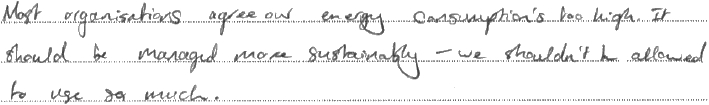 Most organisations agree our energy consumption's too high. It
should be managed more sustainably – we shouldn't be allowed
to use so much.